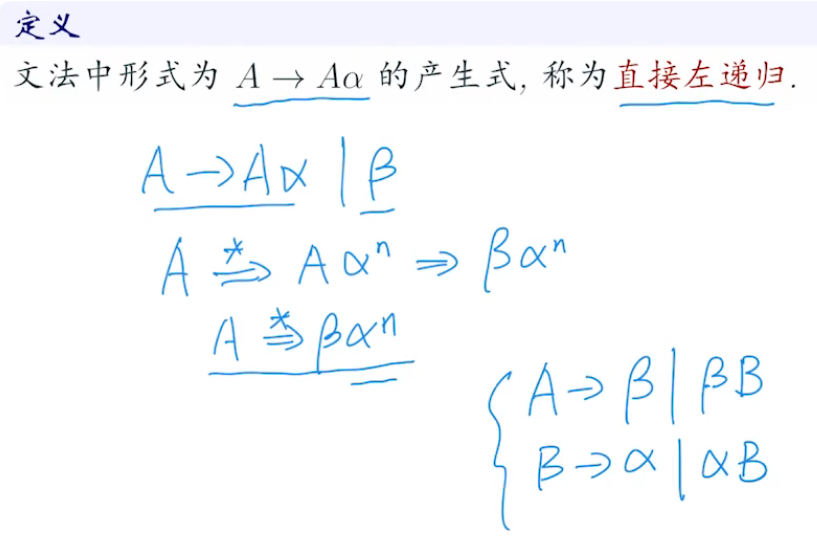 定义
文法中形式为 A → Aα 的产生式, 称为直接左递归.
A → Aα | β
A ⇒* Aαⁿ ⇒ βαⁿ
A ⇒* βαⁿ
A → β | βB
B → α | αB